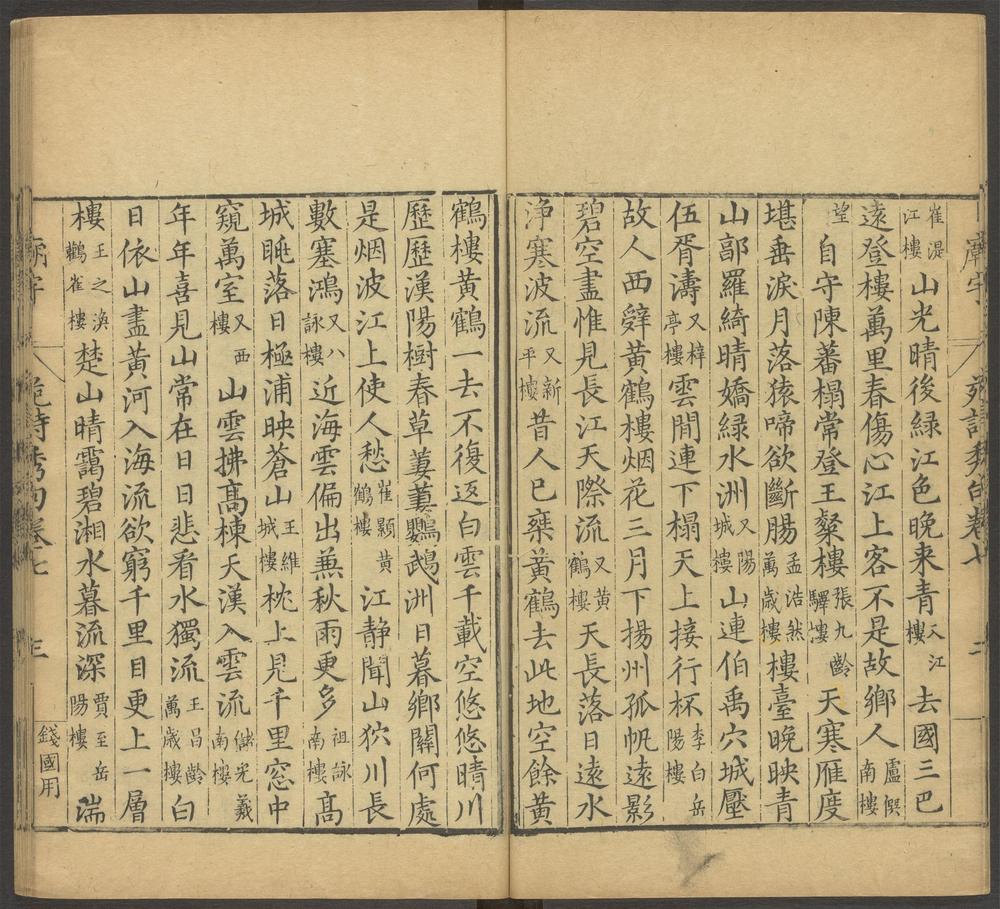 崔湜江樓山光晴後綠江色晚来青又江樓去國三巴
遠登樓萬里春傷心江上客不是故鄉人盧僎南樓
望自守陳蕃榻常登王粲樓張九齡驛樓天寒雁度
堪垂淚月落猿啼欲斷腸孟浩然萬歲樓樓臺晚映青
山郭羅綺晴嬌綠水洲又陽城樓山連伯禹穴城壓
伍胥濤又梓亭樓雲間連下榻天上接行杯李白岳陽樓
故人西辤黃鶴樓烟花三月下揚州孤帆遠影
碧空盡惟見長江天際流又黃鶴樓天長落日遠水
浄寒波流又新平樓昔人已棄黃鶴去此地空餘黃
鶴樓黃鶴一去不復返白雲千載空悠悠晴川
歷歷漢陽樹春草萋萋鸚鵡洲日暮鄉關何處
是烟波江上使人愁崔顥黃鶴樓江静聞山狖川長
數塞鴻又八詠樓近海雲偏出兼秋雨更多祖詠南樓高
城眺落日極浦映蒼山王維城樓枕上見千里窓中
窺萬室又西樓山雲拂高棟天漢入雲流儲光羲南樓
年年喜見山常在日日悲看水獨流王昌齡萬歲樓白
日依山盡黃河入海流欲窮千里目更上一層
樓王之渙鸛雀樓楚山晴靄碧湘水暮流深賈至岳陽樓湍
廟宇
卷七
三
錢國用